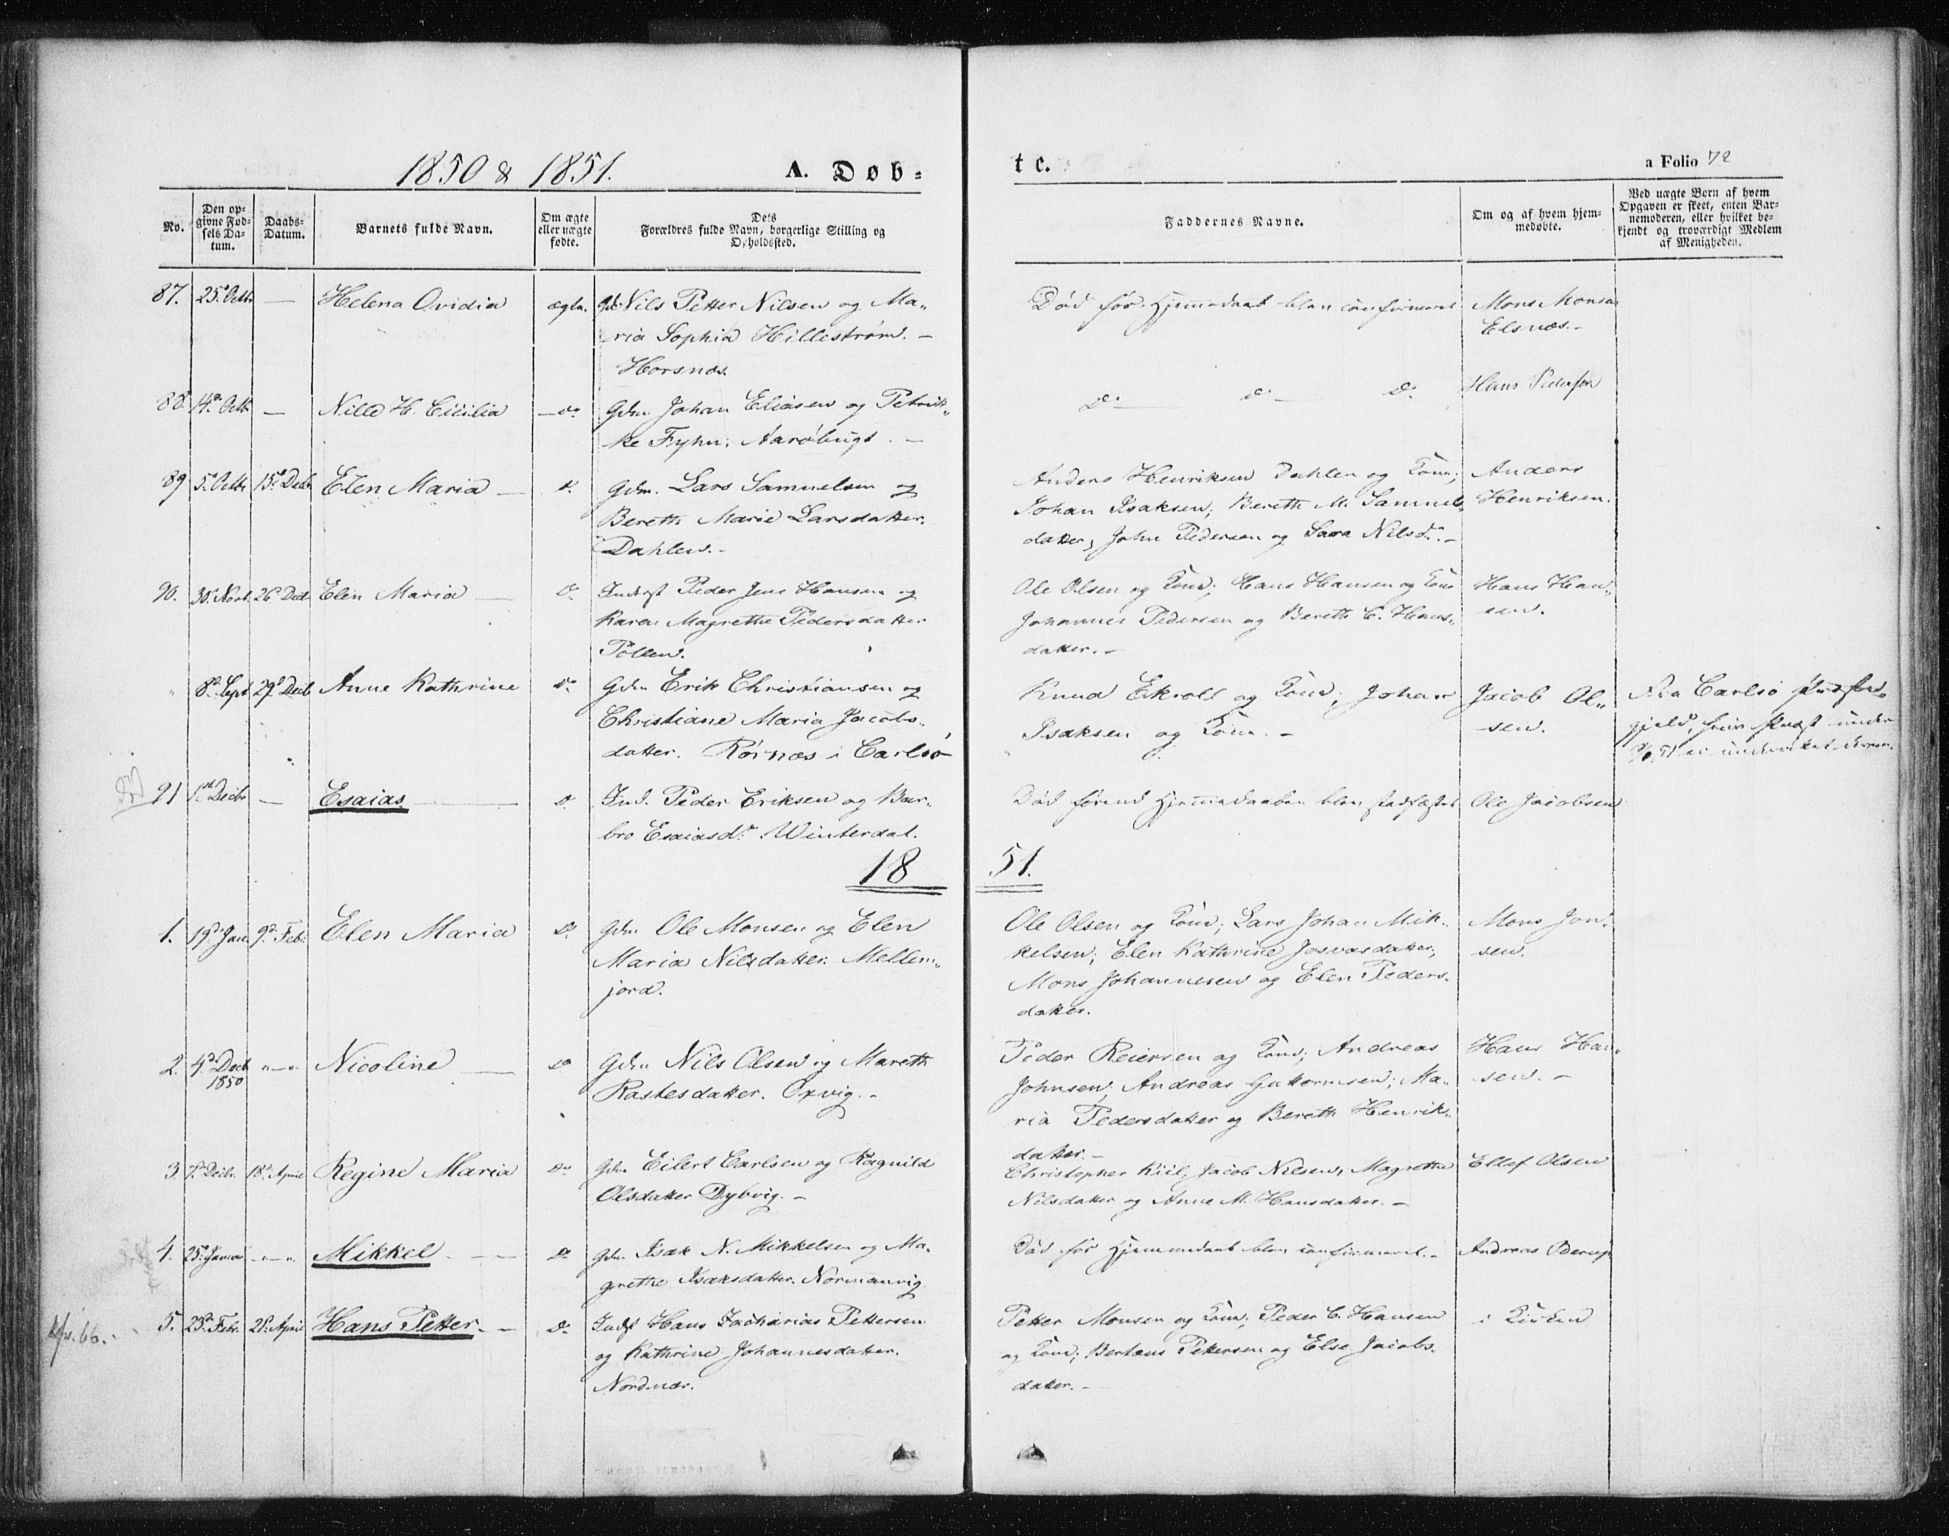 1850 & 1851. A. Døb-
te.
a Folio 72
No.
Den op-
givne Fød-
sels Da-
tum.
Daabs-
Datum.
Barnets fulde Navn.
Om ægte
eller uægte
fødte.
Dets
Forældres fulde Navn, borgerlige Stilling og
Opholdsted.
Faddernes Navne.
Om og af hvem hjem-
medøbte.
Ved uægte Børn af hvem
Opgaven er skeet, enten Bar-
nemoderen, eller hvilket be-
kjendt og troværdigt Medlem
af Menigheden.
87. 25. Octb. — Helena Ovidia ægte. Nils Petter Nilsen og Ma-
ria Sophia Hilleström. —
Horsnæs.
Død før Hjemmedaab blev confirmeret
Mons Monsen
Elsnæs. —
88. 14de Octb. — Nille H. Cicilia — Do Gdm. Johan Eliasen og Petrik-
ke Fyhn. Aarøbugt. —
Do — Do — Do
Hans Pedersen
89 5. Octb. 15. Decb. Elen Maria — Do Gdm. Lars Samuelsen og
Bereth Marie Larsdatter.
Dahlen. —
Anders Henriksen Dahlen og Kone;
Johan Isaksen; Bereth M. Samuels-
datter, John Pedersen og Sara Nilsd. —
Anders
Henriksen.
90. 30. Novb. 26. Decb. Elen Maria — Do Inderst Peder Jens Hansen og
Karen Magrethe Pedersdatter
Pollen.
Ole Olsen og Kone; Hans Hansen og Kone
Johannes Pedersen og Bereth C. Hans-
datter. —
Hans Han-
sen.
" 8. Sept 29. Decb Anne Kathrine Do Gdm Erik Christiansen og
Christiane Maria Jacobs-
datter. Rörnæs i Carlsö
Knud Ekroll og Kone; Johan
Isaksen og Kone. —
Jacob Ol-
sen.
Fra Carlsö Præste-
gjeld, hvis Præst under
91 1ste Decbr — Esaias — Do Ind. Peder Eriksen og Bar-
bro Esaiasdr Winterdal.
Død førend Hjemmedaaben blev stadfæstet
Ole Jacobsen
18 51.
1. 19. Jan. 9. Feb. Elen Maria Do Gdm Ole Monsen og Elen
Maria Nilsdatter. Mellem-
jord.
Ole Olsen og Kone; Lars Johan Mik-
kelsen; Elen Kathrine Josvasdatter;
Mons Johannesen og Elen Peders-
datter.
Mons Jon-
sen.
2. 4de Decb
1850 " — " Nicoline — Do Gdm Nils Olsen og Mareth
Rastesdatter. Oxvig. —
Peder Reiersen og Kone; Andreas
Johnsen; Andreas Guttormsen; Ma-
ria Pedersdatter og Bereth Henriks-
datter. —
Hans Han-
sen. —
3. 7. Decbr. 18. April Regine Maria Do Gdm Eilert Carlsen og Ragnild
Olsdatter Dybvig. —
Christopher Kiil, Jacob Nilsen, Magrethe
Nilsdatter og Anne M. Hansdatter. —
Ellef Olsen
4. 25. Januar " — " Mikkel — Do Gdm Isak N. Mikkelsen og Ma-
grethe Isaksdatter. Normanvig
Død før Hjemmedaab blev confirmeret. —
Andreas
5. 23. Febr. 21. April Hans Petter. — Do Indst Hans Zacharias Pettersen
og Kathrine Johannesdatter.
Nordnæs.
Petter Monsen og Kone; Peder C. Hansen
og Kone; Bertæus Pettersen og Else Jacobs-
datter. —
i Kirken